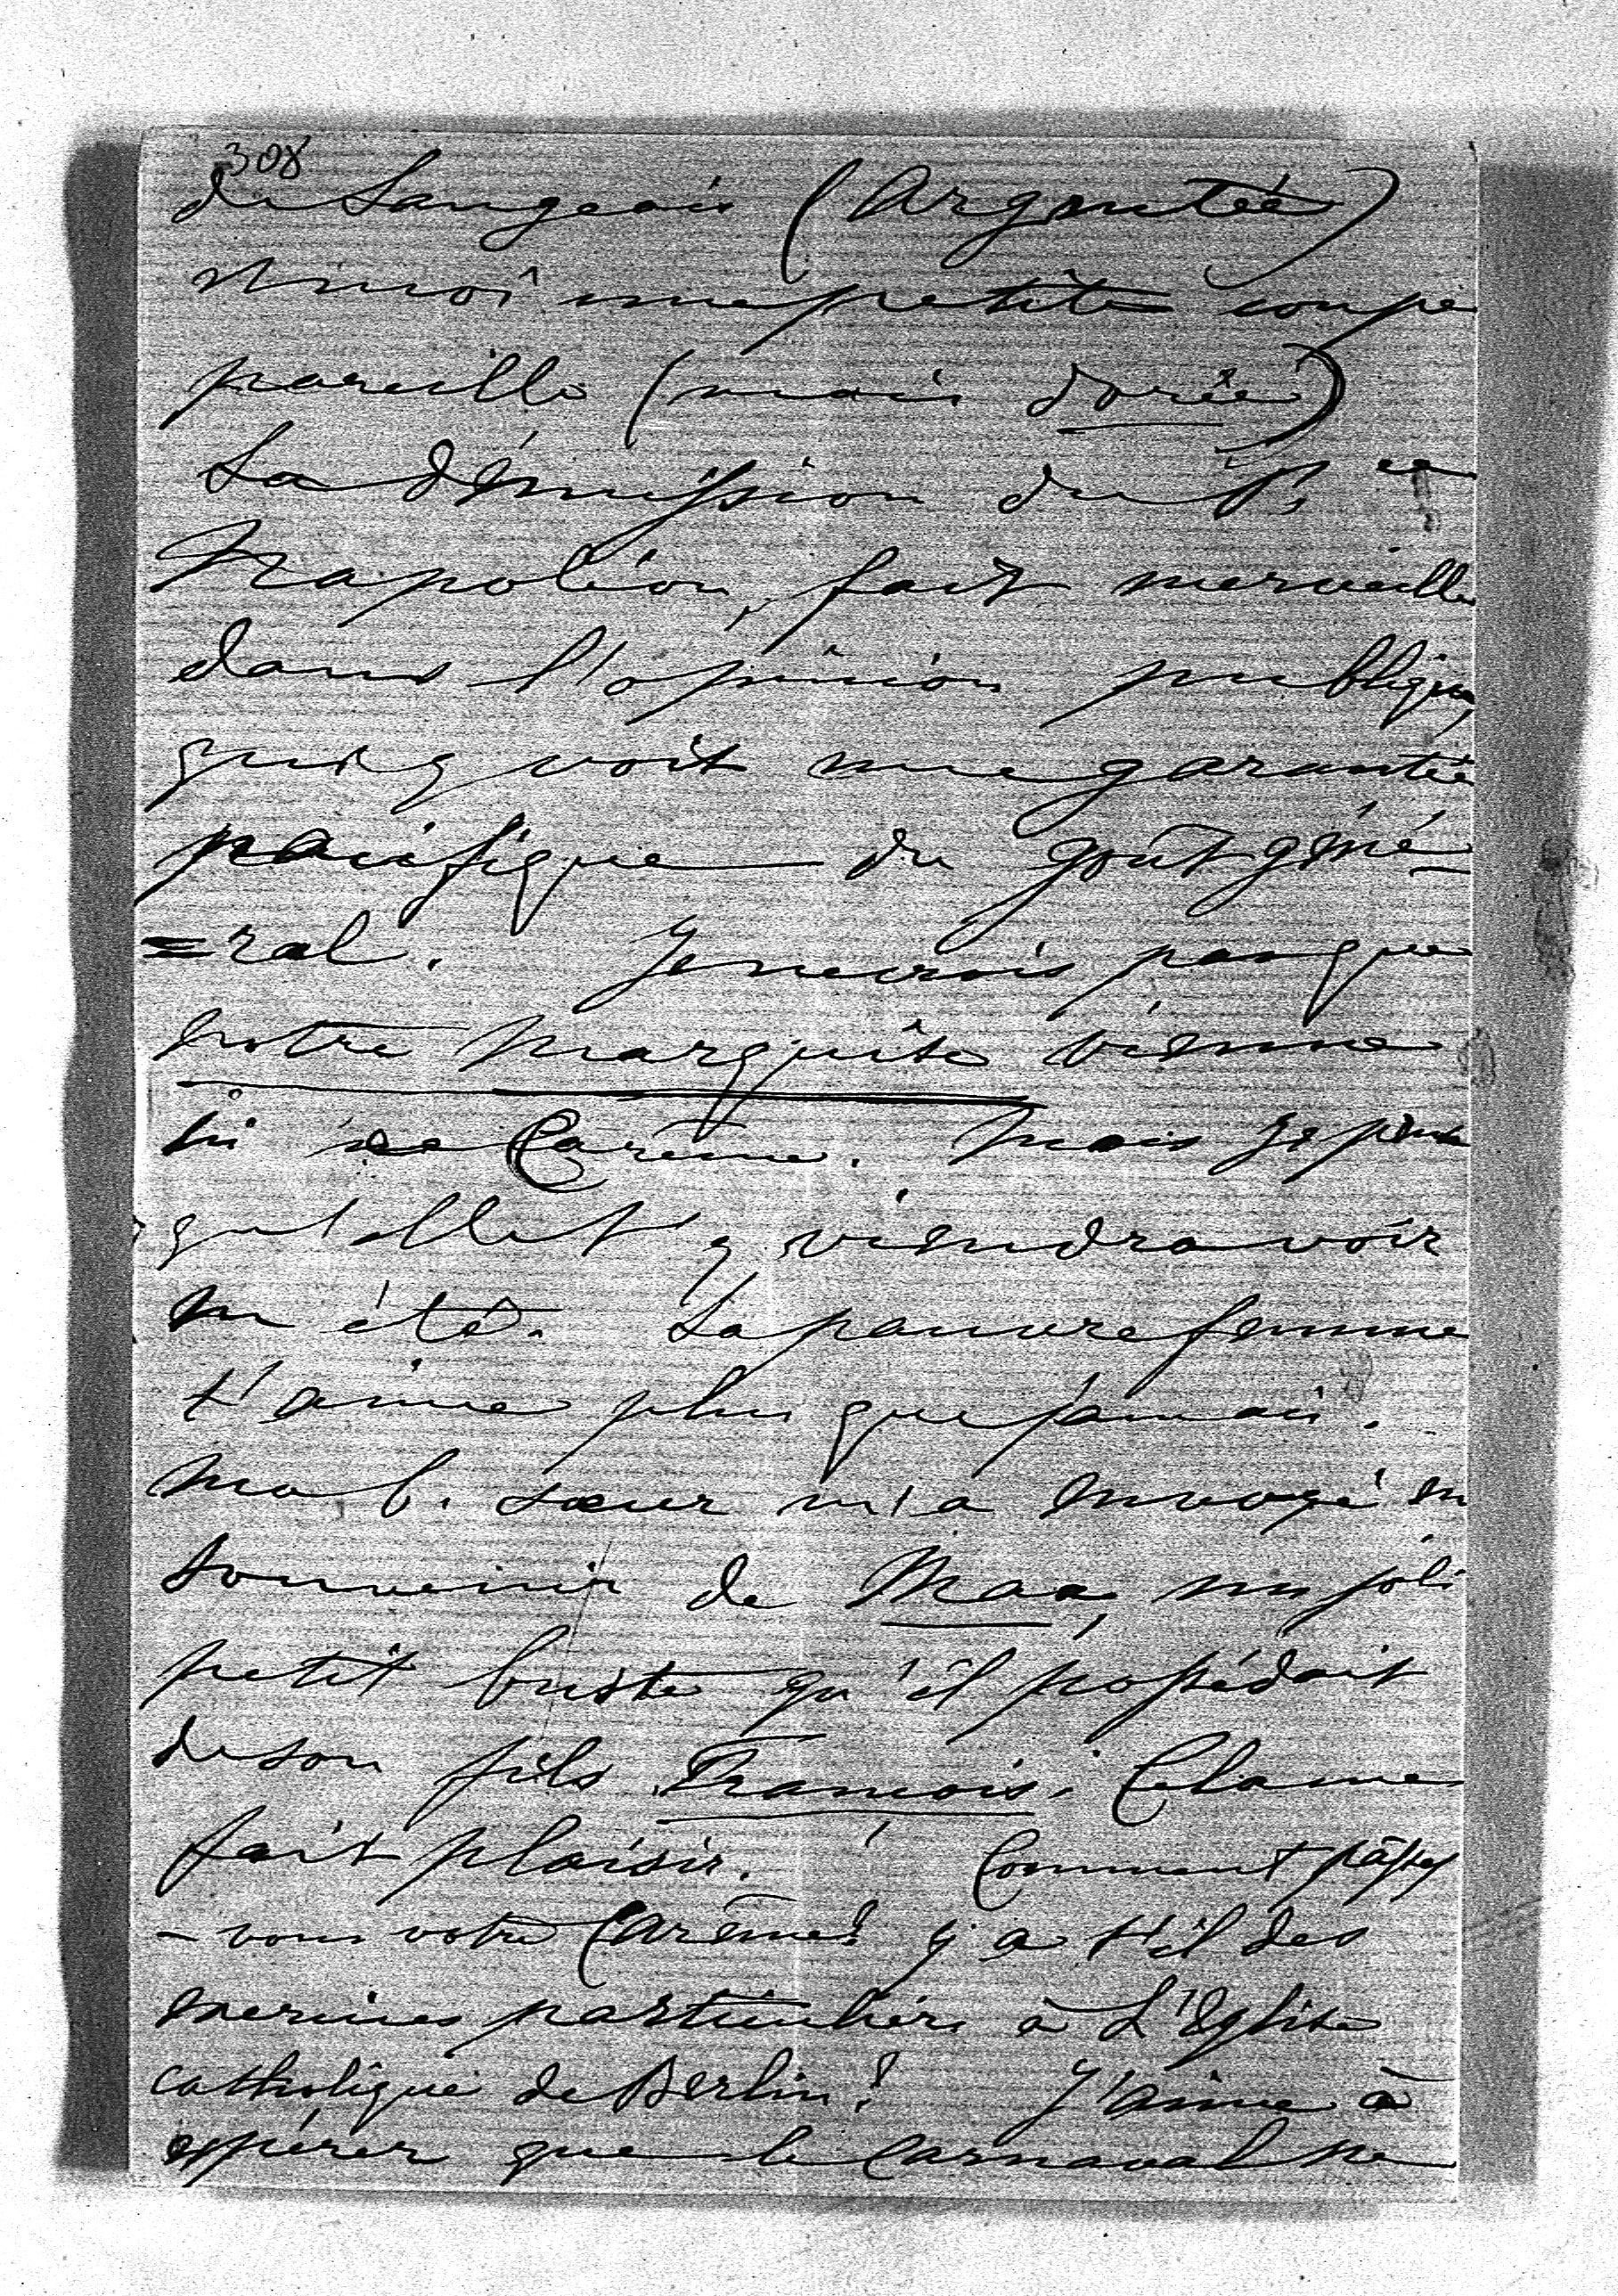 308
de Langeais (Argentée)
et moi une petite coupe
pareille (mais dorée)
La démission du P.ce
Napoléon, fait merveille
dans l'opinion publique,
qui y voit une garantie
pacifique du goût géné-
=ral. Je ne crois pas que
notre Marquise vienne
ici ce Carême. Mais je pense
qu'elle t'y viendra voir
en été. La pauvre femme
t'aime plus que jamais.
Ma b. soeur m'a envoyé en
souvenir de Max, un joli
petit buste qu'il possédait
de son fils François. Cela me
fait plaisir. Comment passez
-vous votre Carême? y a t'il des
exercices particuliers à L'Eglise
catholique de Berlin? J'aime à
espérer que le Carnaval ne